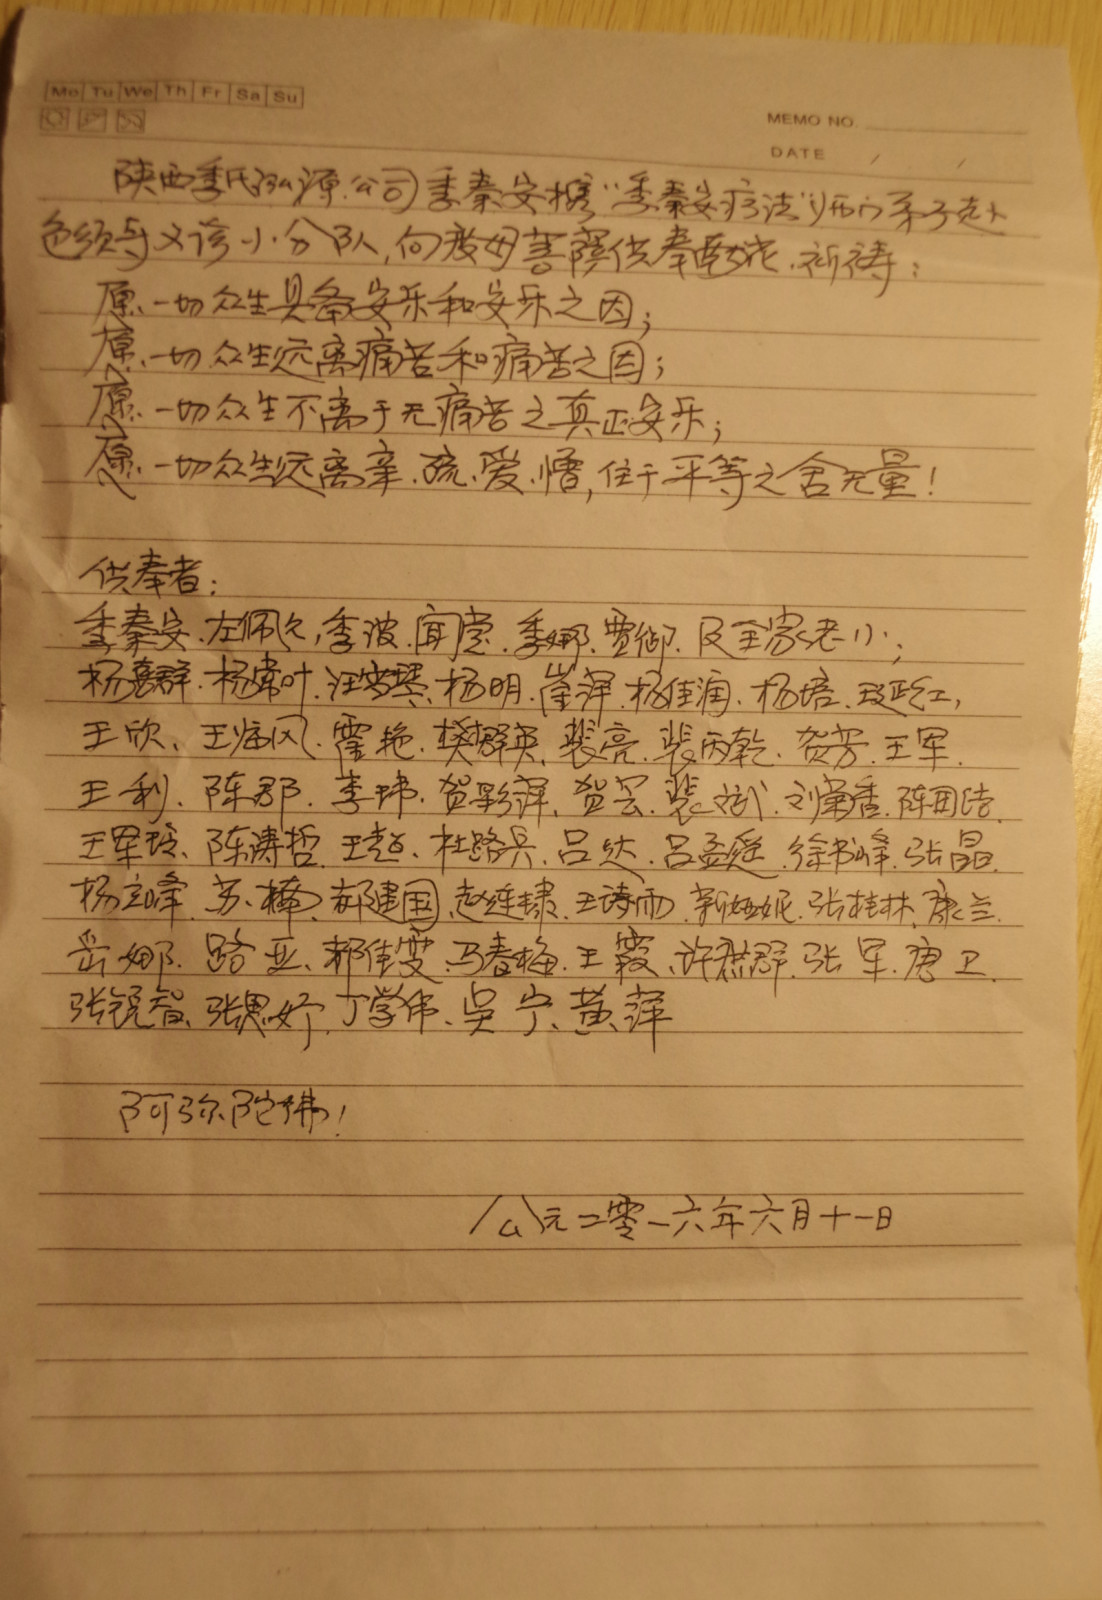 Mo Tu We Th Fr Sa Su
MEMO NO.
DATE / /
陕西季氏弘源公司季秦安携“季秦安疗法”师门弟子赴
色须寺义诊小分队,向度母菩萨供奉 祈祷:
愿一切众生具备安乐和安乐之因;
愿一切众生远离痛苦和痛苦之因;
愿一切众生不离于无痛苦之真正安乐;
愿一切众生远离亲、疏、爱、憎,住于平等之舍无量!
供奉者:
季秦安、左佩 ,季波、闻 、季娜、贾御、及全家老小;
杨喜群、杨常叶、汪安琴、杨明、崔萍、杨佳润、杨培、
王欣、 、霍艳、樊群英、裴亮、裴丙乾、贺芳、王军、
王利、陈郡、李玮、贺彩萍、贺芸、裴斌、刘菊香、陈国洁、
王军玲、陈涛哲、王超、杜路兵、吕达、 、徐书峰、张晶、
杨立峰、苏楠、郝建国、赵连 、王诗雨、靳娅妮、张桂林、康兰、
岳娜、路亚、郝佳雯、马春梅、王霞、许 群、张军、唐卫、
张锐智、张思妤、丁学伟、吴宁、黄萍
阿弥陀佛!
公元二零一六年六月十一日